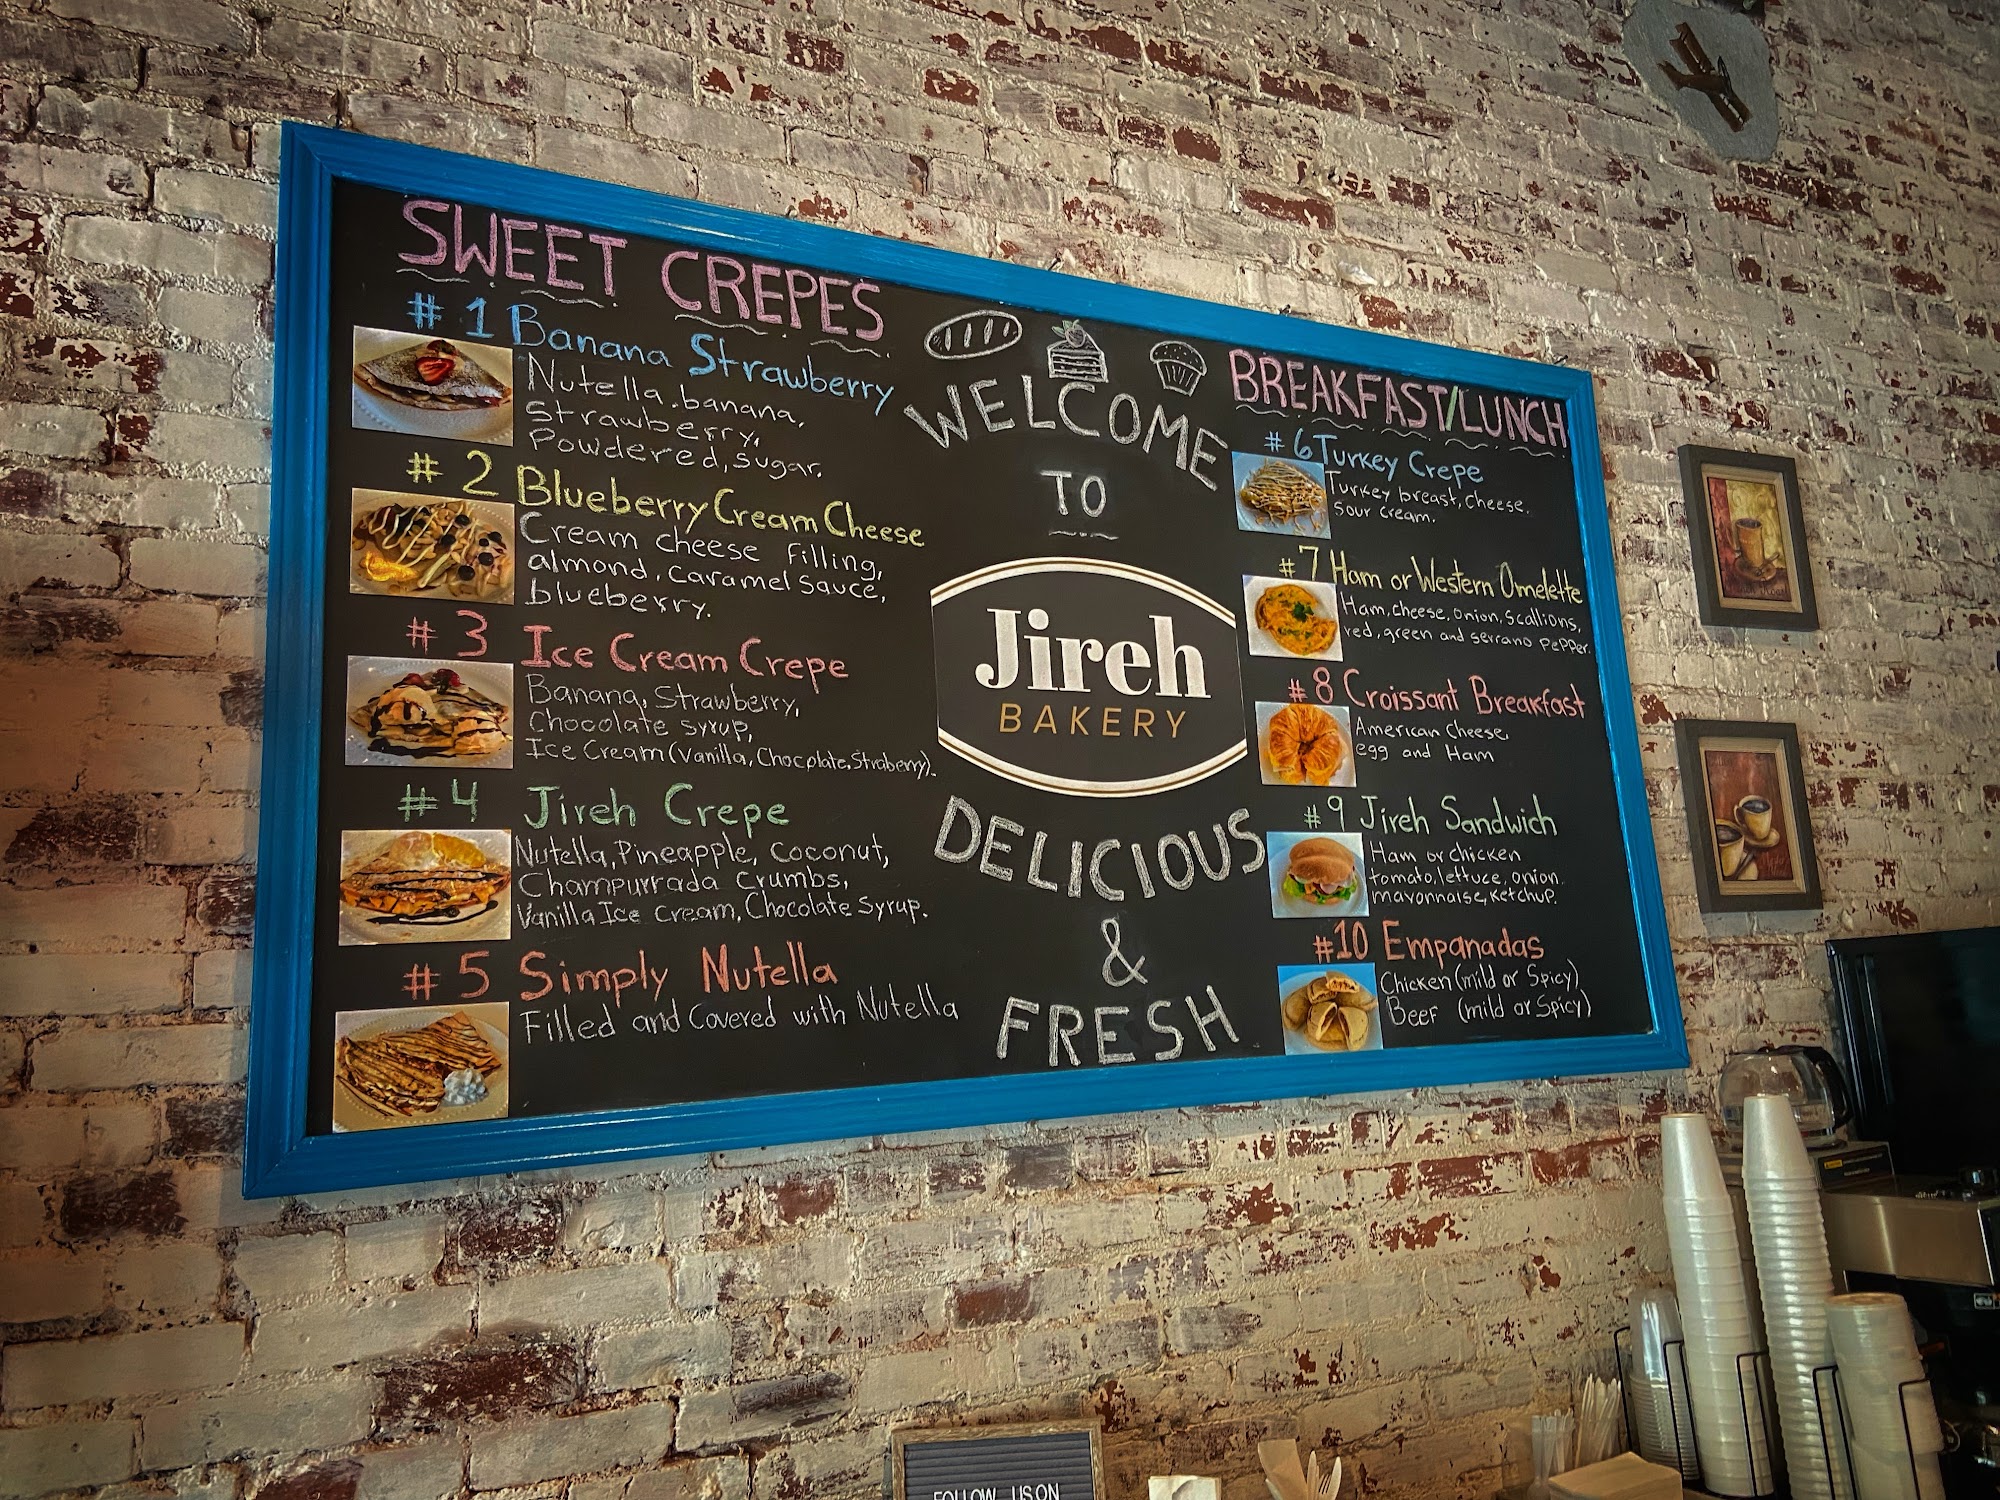 SWEET CREPES
#1 Banana Strawberry
Nutella, banana,
Strawberry,
Powdered, sugar.
#2 Blueberry Cream Cheese
Cream cheese filling,
almond, caramel sauce,
blueberry.
#3 Ice Cream Crepe
Banana, Strawberry,
Chocolate syrup,
Ice Cream (Vanilla, Chocplate, Straberry).
#4 Jireh Crepe
Nutella, Pineapple, coconut,
Champurrada crumbs,
Vanilla Ice cream, Chocolate Syrup.
#5 Simply Nutella
Filled and Covered with Nutella
WELCOME
TO
Jireh
BAKERY
DELICIOUS
&
FRESH
BREAKFAST/LUNCH
#6 Turkey Crepe
Turkey breast, cheese,
sour cream.
#7 Ham or Western Omelette
Ham, cheese, onion, scallions,
red, green and serrano pepper.
#8 Croissant Breakfast
American Cheese,
egg and Ham
#9 Jireh Sandwich
Ham or chicken
tomato, lettuce, onion.
mayonnaise, ketchup.
#10 Empanadas
Chicken (mild or Spicy)
Beef (mild or Spicy)
FOLLOW US ON